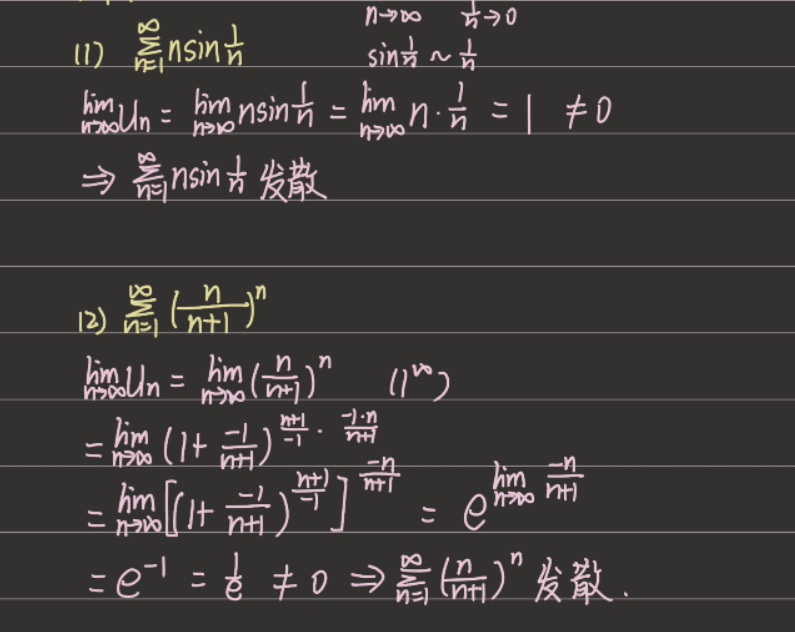 n→∞ 1/n→0
(1) ∑_{n=1}^{∞} n sin 1/n
sin 1/n ~ 1/n
lim_{n→∞} Un = lim_{n→∞} n sin 1/n = lim_{n→∞} n · 1/n = 1 ≠ 0
⇒ ∑_{n=1}^{∞} n sin 1/n 发散
(2) ∑_{n=1}^{∞} (n/(n+1))^n
lim_{n→∞} Un = lim_{n→∞} (n/(n+1))^n (1^∞)
= lim_{n→∞} (1 + (-1)/(n+1))^{(n+1)/(-1) · (-1·n)/(n+1)}
= lim_{n→∞} [(1 + (-1)/(n+1))^{(n+1)/(-1)}]^{(-n)/(n+1)} = e^{lim_{n→∞} (-n)/(n+1)}
= e^{-1} = 1/e ≠ 0 ⇒ ∑_{n=1}^{∞} (n/(n+1))^n 发散.